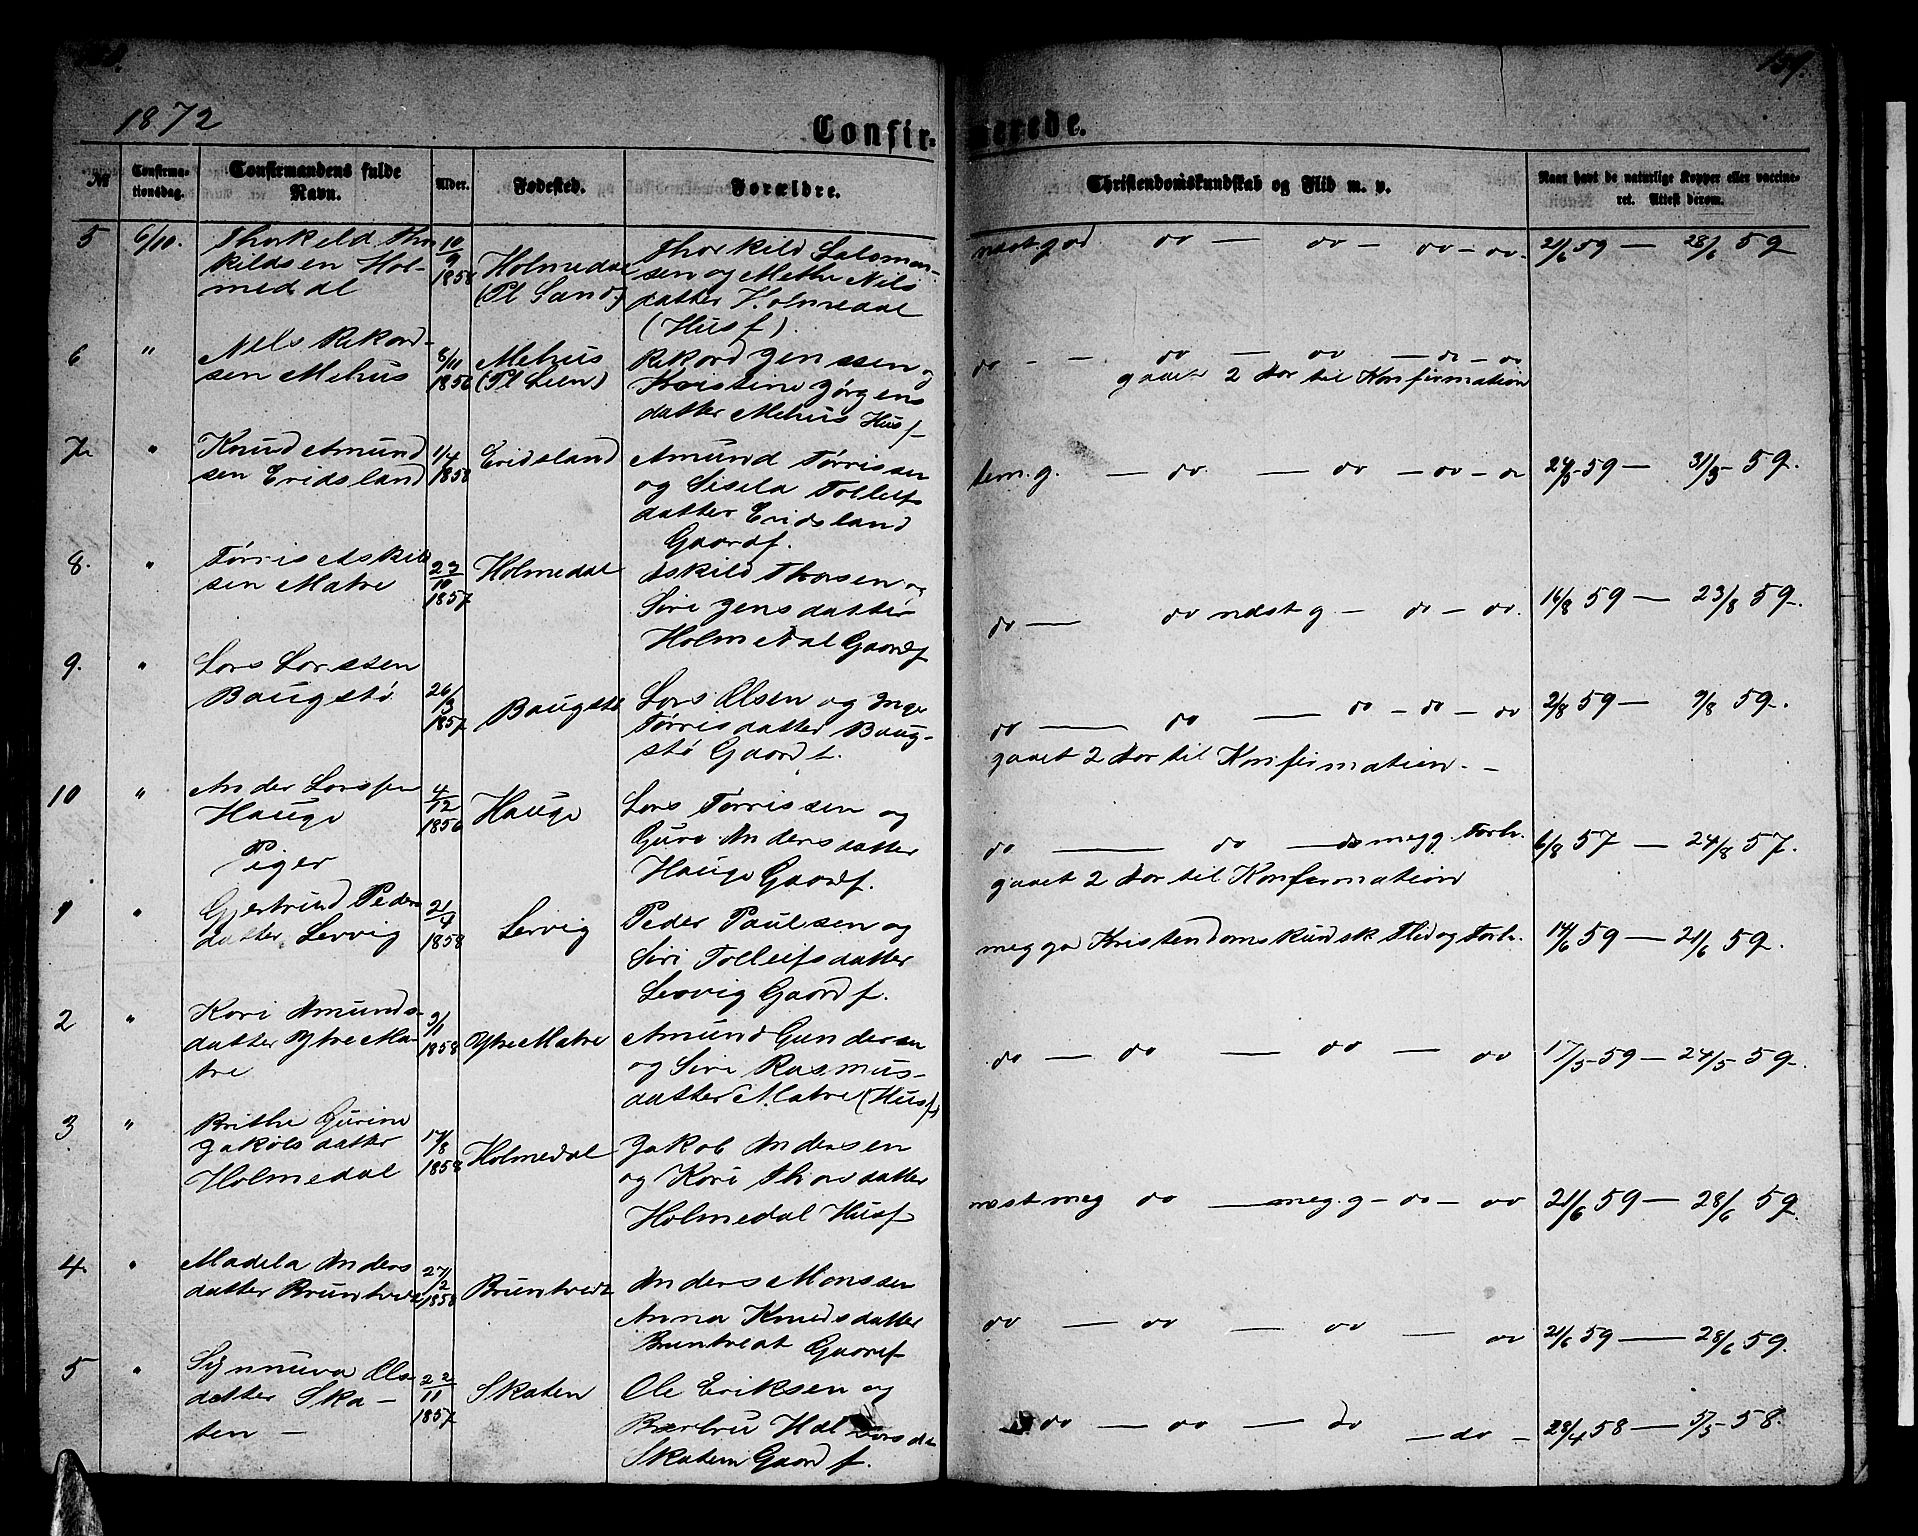 159.
1872
Confirmerede.
№
Confirma-
tionsdag.
Confirmandens fulde
Navn.
Alder.
Fødested.
Forældre.
Christendomskundskab og Flid m. v.
Naar havt de naturlige Kopper eller vaccine-
ret. Attest derom.
5 6/10.
Thorkild Thor
kildsen Hol-
medal
10/9
1858
Holmedal
(Pl Sand)
Thorkild Salomon-
sen og Methe Nils
datter Holmedal
(Husf).
næst. god do — do — do — do. 21/6 59 — 28/6 59
6 "
Nels Rikord-
sen Mehus
8/11
1856
Mehus
(Pl Leen)
Rikord Jenssen og
Kristine Jørgens
datter Mehus Husf
do — — do — do — do — do
gaaet 2 Aar til Konfirmation
7 "
Knud Amund
sen Eridsland
1/4
1858
Eridsland
Amund Tørrissen
og Sisela Tolleifs
datter Eridsland
Gaardf.
tem. g. — do. — do — do — do 24/5 59 — 31/5 59.
8. "
Tørris Askild
sen Matre
23/10
1857
Holmedal
Askild Thorsen og
Siri Jensdatter
Holmedal Gaardf
do — do næst g — do — do. 16/8 59 — 23/8 59.
9. "
Lars Larssen
Baugstø
26/3
1857
Baugstø
Lars Olsen og Inge
Tørrisdatter Baug-
stø Gaardf.
do — do — do — do — do 2/8 59 — 9/8 59.
gaaet 2 Aar til Konfirmation. —
10 "
Ander Larssen
Hauge
4/12
1856
Hauge
Lars Tørrissen og
Guro Andersdatter
Hauge Gaardf.
do — do — do meg g. Forh. 6/8 57 — 24/8 57.
gaaet 2 Aar til Konfirmation
Piger
1 "
Gjertrud Peders
datter Lervig
21/4
1858
Lervig
Peder Paulsen og
Siri Tolleifsdatter
Lervig Gaardf.
meg go Kristendomskundsk Flid og Forh. 14/6 59 — 21/6 59.
2 "
Kari Amunds-
datter Ytre Ma-
tre
3/1
1858
Ytre Matre
Amund Gundersen
og Siri Rasmus-
datter Matre (Husf)
do — do — do — do 17/5 59 — 24/5 59.
3 "
Brithe Gurine
Jakobsdatter
Holmedal
17/8
1858
Holmedal
Jakob Andersen
og Kari Thorsdatter
Holmedal Husf
næst meg do — meg. g — do — do 21/6 59 — 28/6 59.
4 "
Madela Anders
datter Bruntvedt
27/2
1858
Bruntvedt
Anders Monssen
Anna Knudsdatter
Bruntvedt Gaardf
do — do — do — do 21/6 59 — 28/6 59.
5 "
Synnuva Ols
datter Ska-
ten —
22/11
1857
Skaten
Ole Eriksen og
Bærtru Haldorsda
Skaten Gaardf.
do — do — do — do — 28/4 58 — 5/5 58.